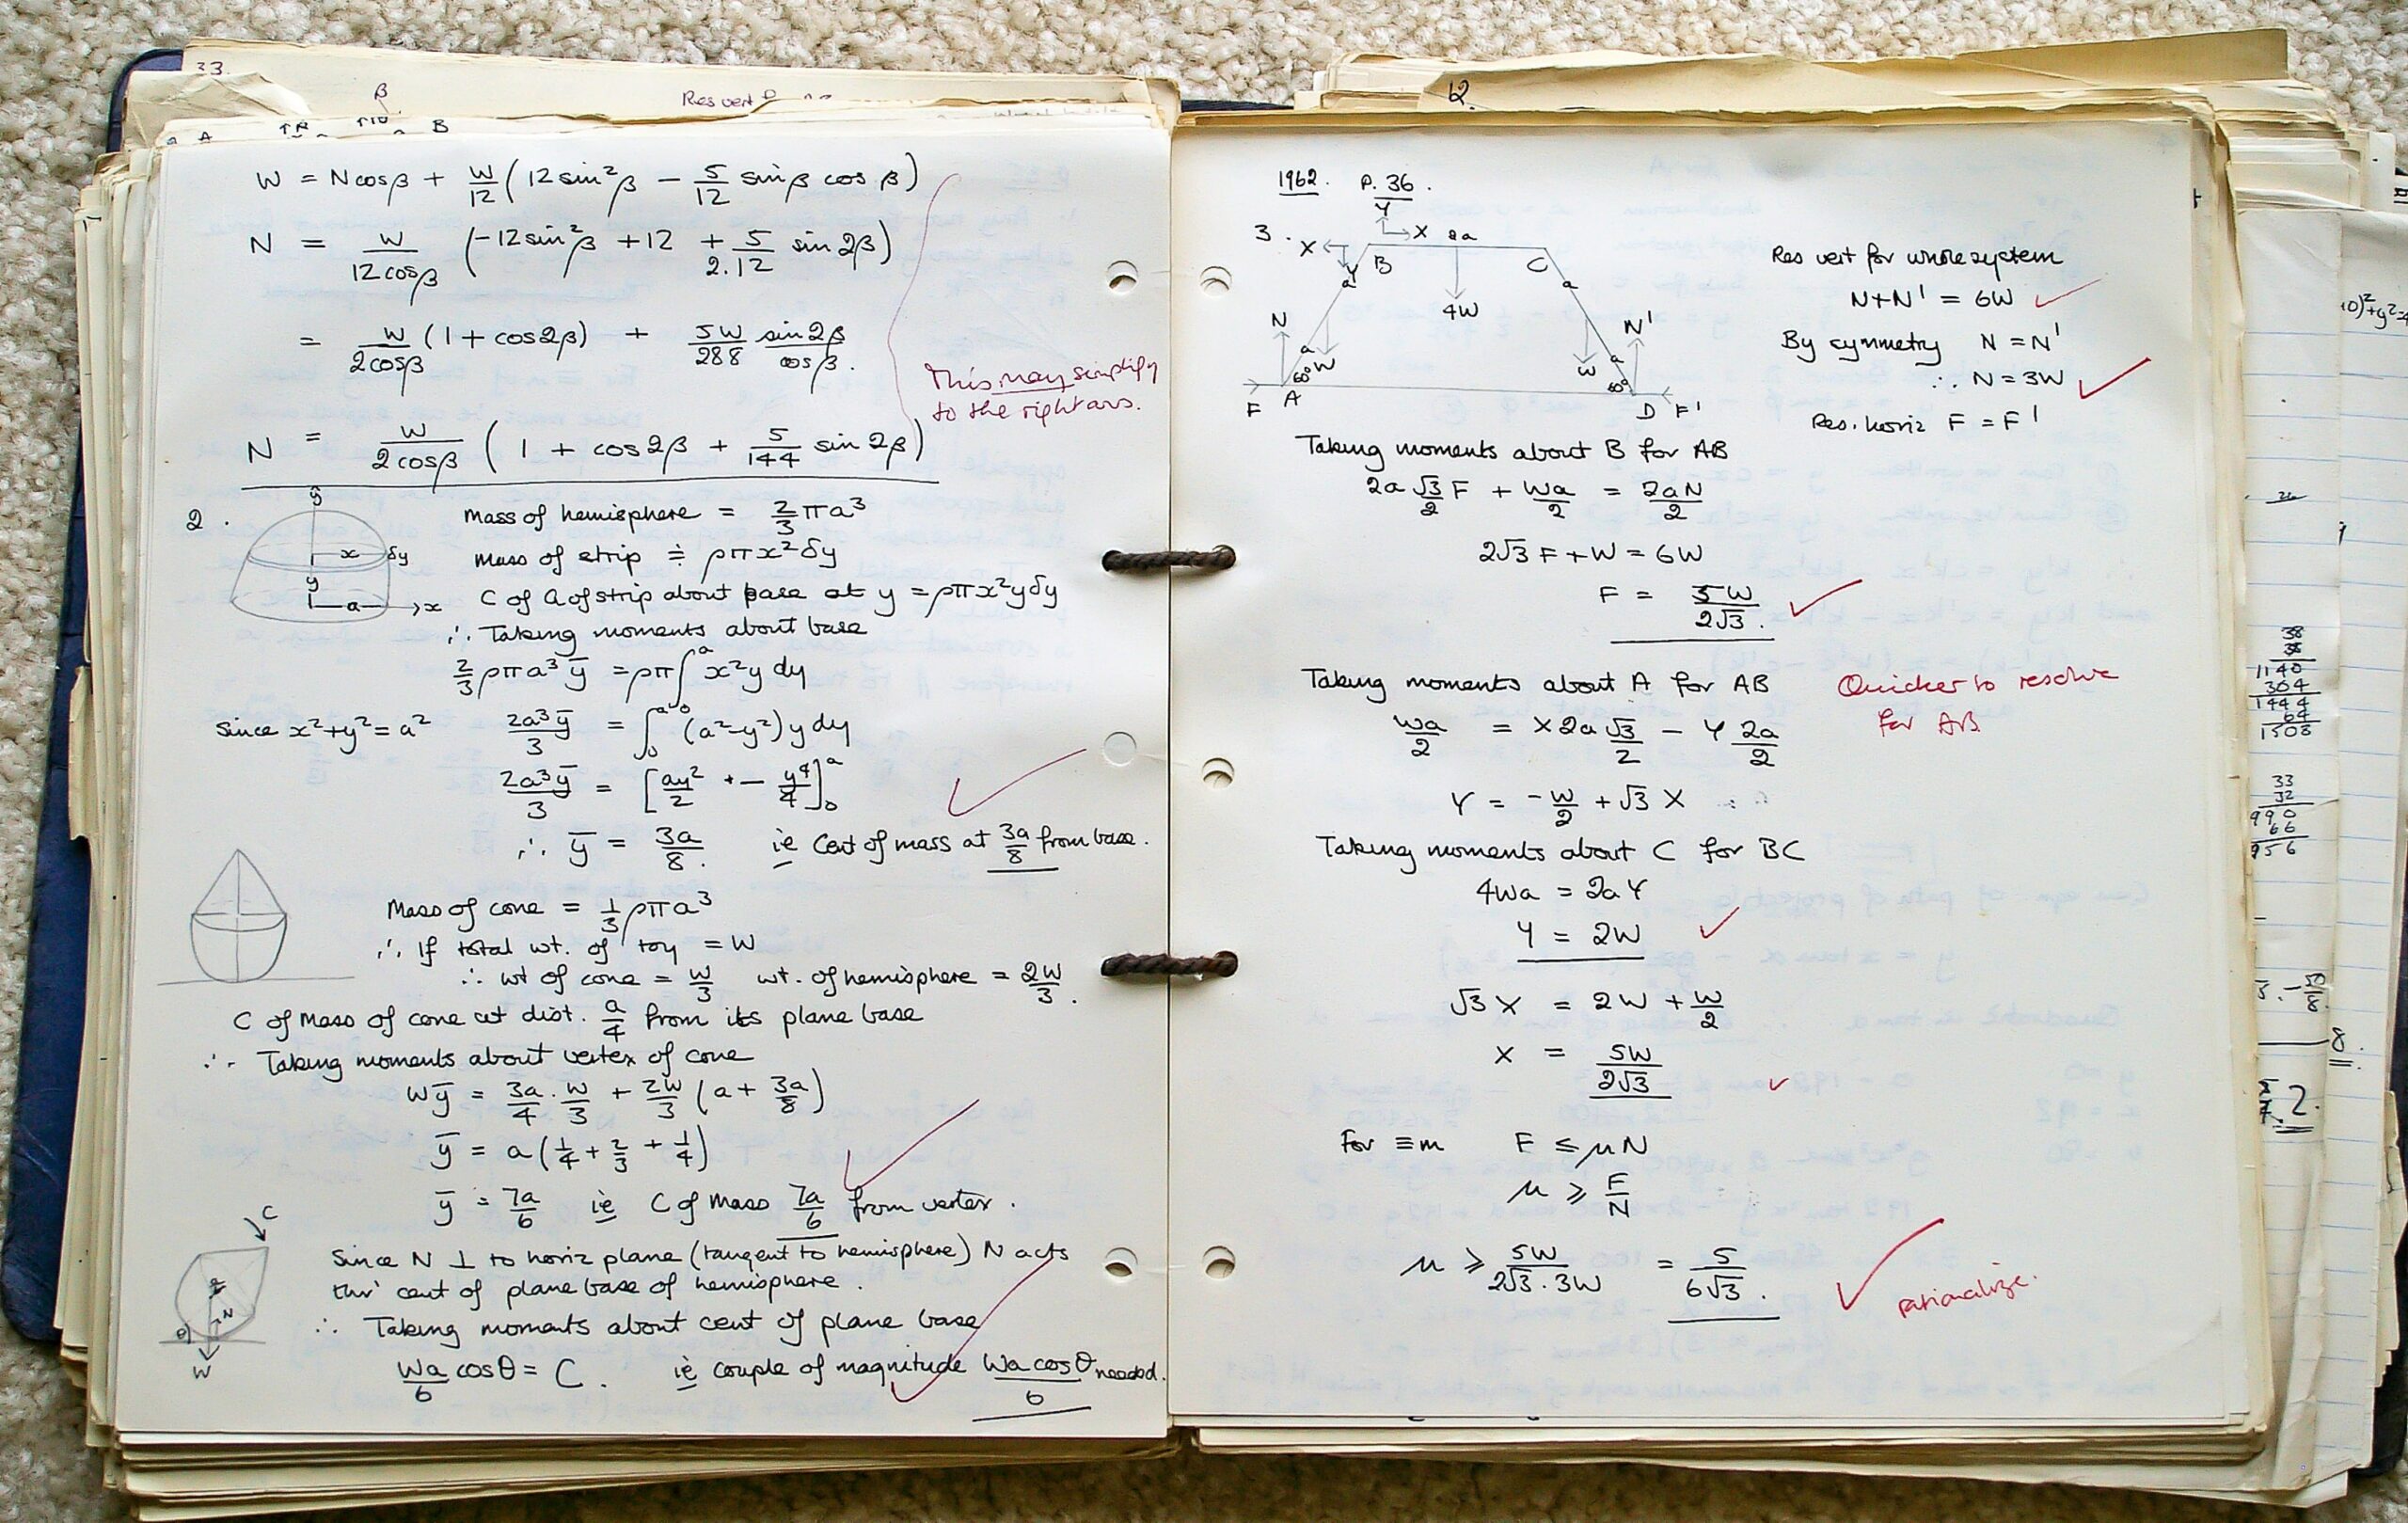 33.
β
Res vert
A
B
W = N cosβ + W/12 (12 sin²β − 5/12 sinβ cosβ)
N = W/12cosβ (−12sin²β + 12 + 5/2.12 sin 2β)
= W/2cosβ (1 + cos2β) + 5W/288 sin2β/cosβ.
This may simplify
to the right ans.
N = W/2cosβ (1 + cos2β + 5/144 sin 2β)
2.
ŷ
x δy
y
a x
Mass of hemisphere = 2/3 πa³
Mass of strip ≑ ρπx²δy
C of G of strip about base at y = ρπx²yδy
∴ Taking moments about base
2/3 ρπa³ȳ = ρπ∫₀ᵃ x²y dy
Since x²+y² = a² 2a³ȳ/3 = ∫₀ᵃ (a²−y²)y dy
2a³ȳ/3 = [ay²/2 + − y⁴/4]₀ᵃ
∴ ȳ = 3a/8. ie Cent of mass at 3a/8 from base.
Mass of cone = 1/3 ρπa³
∴ If total wt. of toy = W
∴ wt of cone = W/3 wt. of hemisphere = 2W/3.
C of Mass of cone at dist. a/4 from its plane base
∴ Taking moments about vertex of cone
Wȳ = 3a/4 . W/3 + 2W/3 (a + 3a/8)
ȳ = a(1/4 + 2/3 + 1/4)
ȳ = 7a/6 ie C of Mass 7a/6 from vertex.
C
N
θ
W
Since N ⊥ to horiz plane (tangent to hemisphere) N acts
thro' cent of plane base of hemisphere.
∴ Taking moments about cent of plane base
Wa/6 cosθ = C. ie couple of magnitude Wa cosθ/6 needed.
62.
1962. P. 36.
3.
Y
X X 2a
Y B C
a a
4W
N N'
a W W a
60° 60°
F A D F'
Res vert for whole system
N+N' = 6W
By symmetry N = N'
∴ N = 3W
Res. horiz F = F'
Taking moments about B for AB
2a √3/2 F + Wa/2 = 2aN/2
2√3 F + W = 6W
F = 5W/2√3.
Taking moments about A for AB
Quicker to resolve
for AB
Wa/2 = X 2a √3/2 − Y 2a/2
Y = −W/2 + √3 X
Taking moments about C for BC
4Wa = 2aY
Y = 2W
√3 X = 2W + W/2
X = 5W/2√3
For ≡m F ≤ μN
μ ≥ F/N
μ ≥ 5W/2√3.3W = 5/6√3.
rationalize.
38
38
1140
304
1444
64
1508
33
32
990
66
956
8.
2.